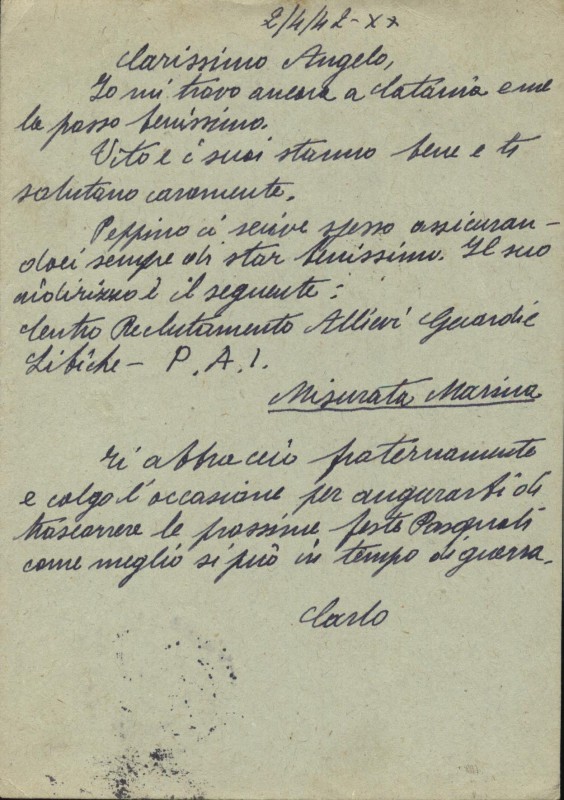 2/4/42-XX
Carissimo Angelo,
Io mi trovo ancora a Catania e me
la passo benissimo.
Vito e i suoi stanno bene e ti
salutano caramente.
Peppino ci scrive spesso assicuran-
doci sempre di star benissimo. Il suo
indirizzo è il seguente:
Centro Reclutamento Allievi Guardie
Libiche - P.A.I.
Misurata Marina
Ti abbraccio fraternamente
e colgo l'occasione per augurarti di
trascorrere le prossime feste Pasquali
come meglio si può in tempo di guerra.
Carlo